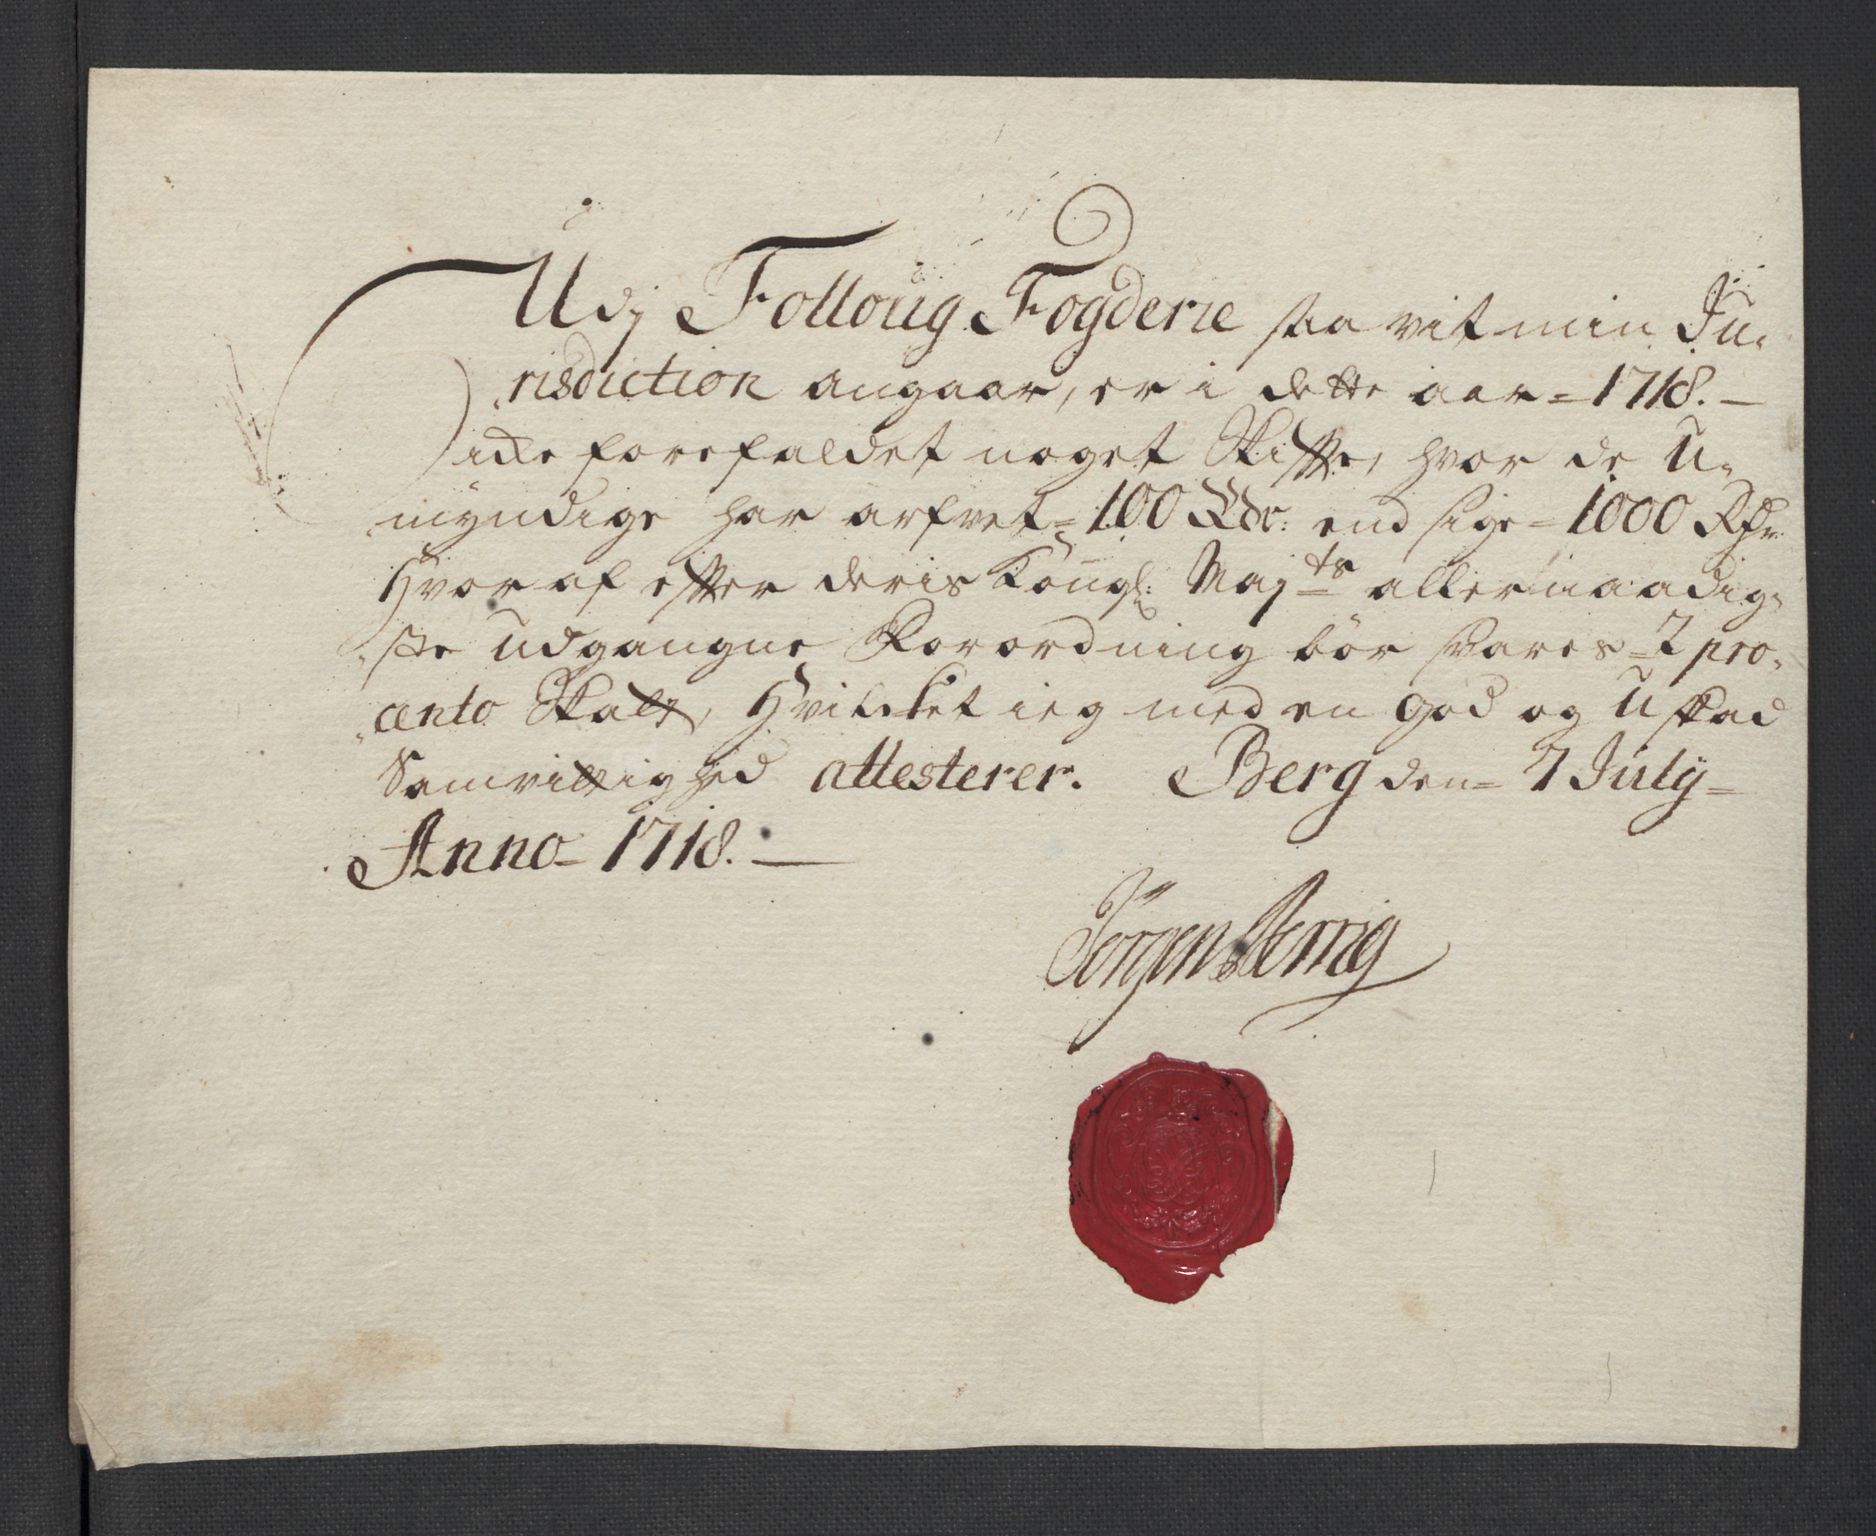 Udj Folloug Fogderie saa vit min Ju-
risdiction angaar, er i dette aar = 1718. -
icke forefaldet noget Skiffte, hvor de U-
myndige har arfvet = 100 Rdr: end sige = 1000 Rdr
Hvor af effter deris Kongl: Maj:ts allernaadig-
ste udgangne Forordning bör svares = 2 pro-
cento Skatt, Hvilcket ieg med en god og Uskad
Samvittighed attesterer. Berg den = 7 July =
Anno = 1718. -
Jörgen